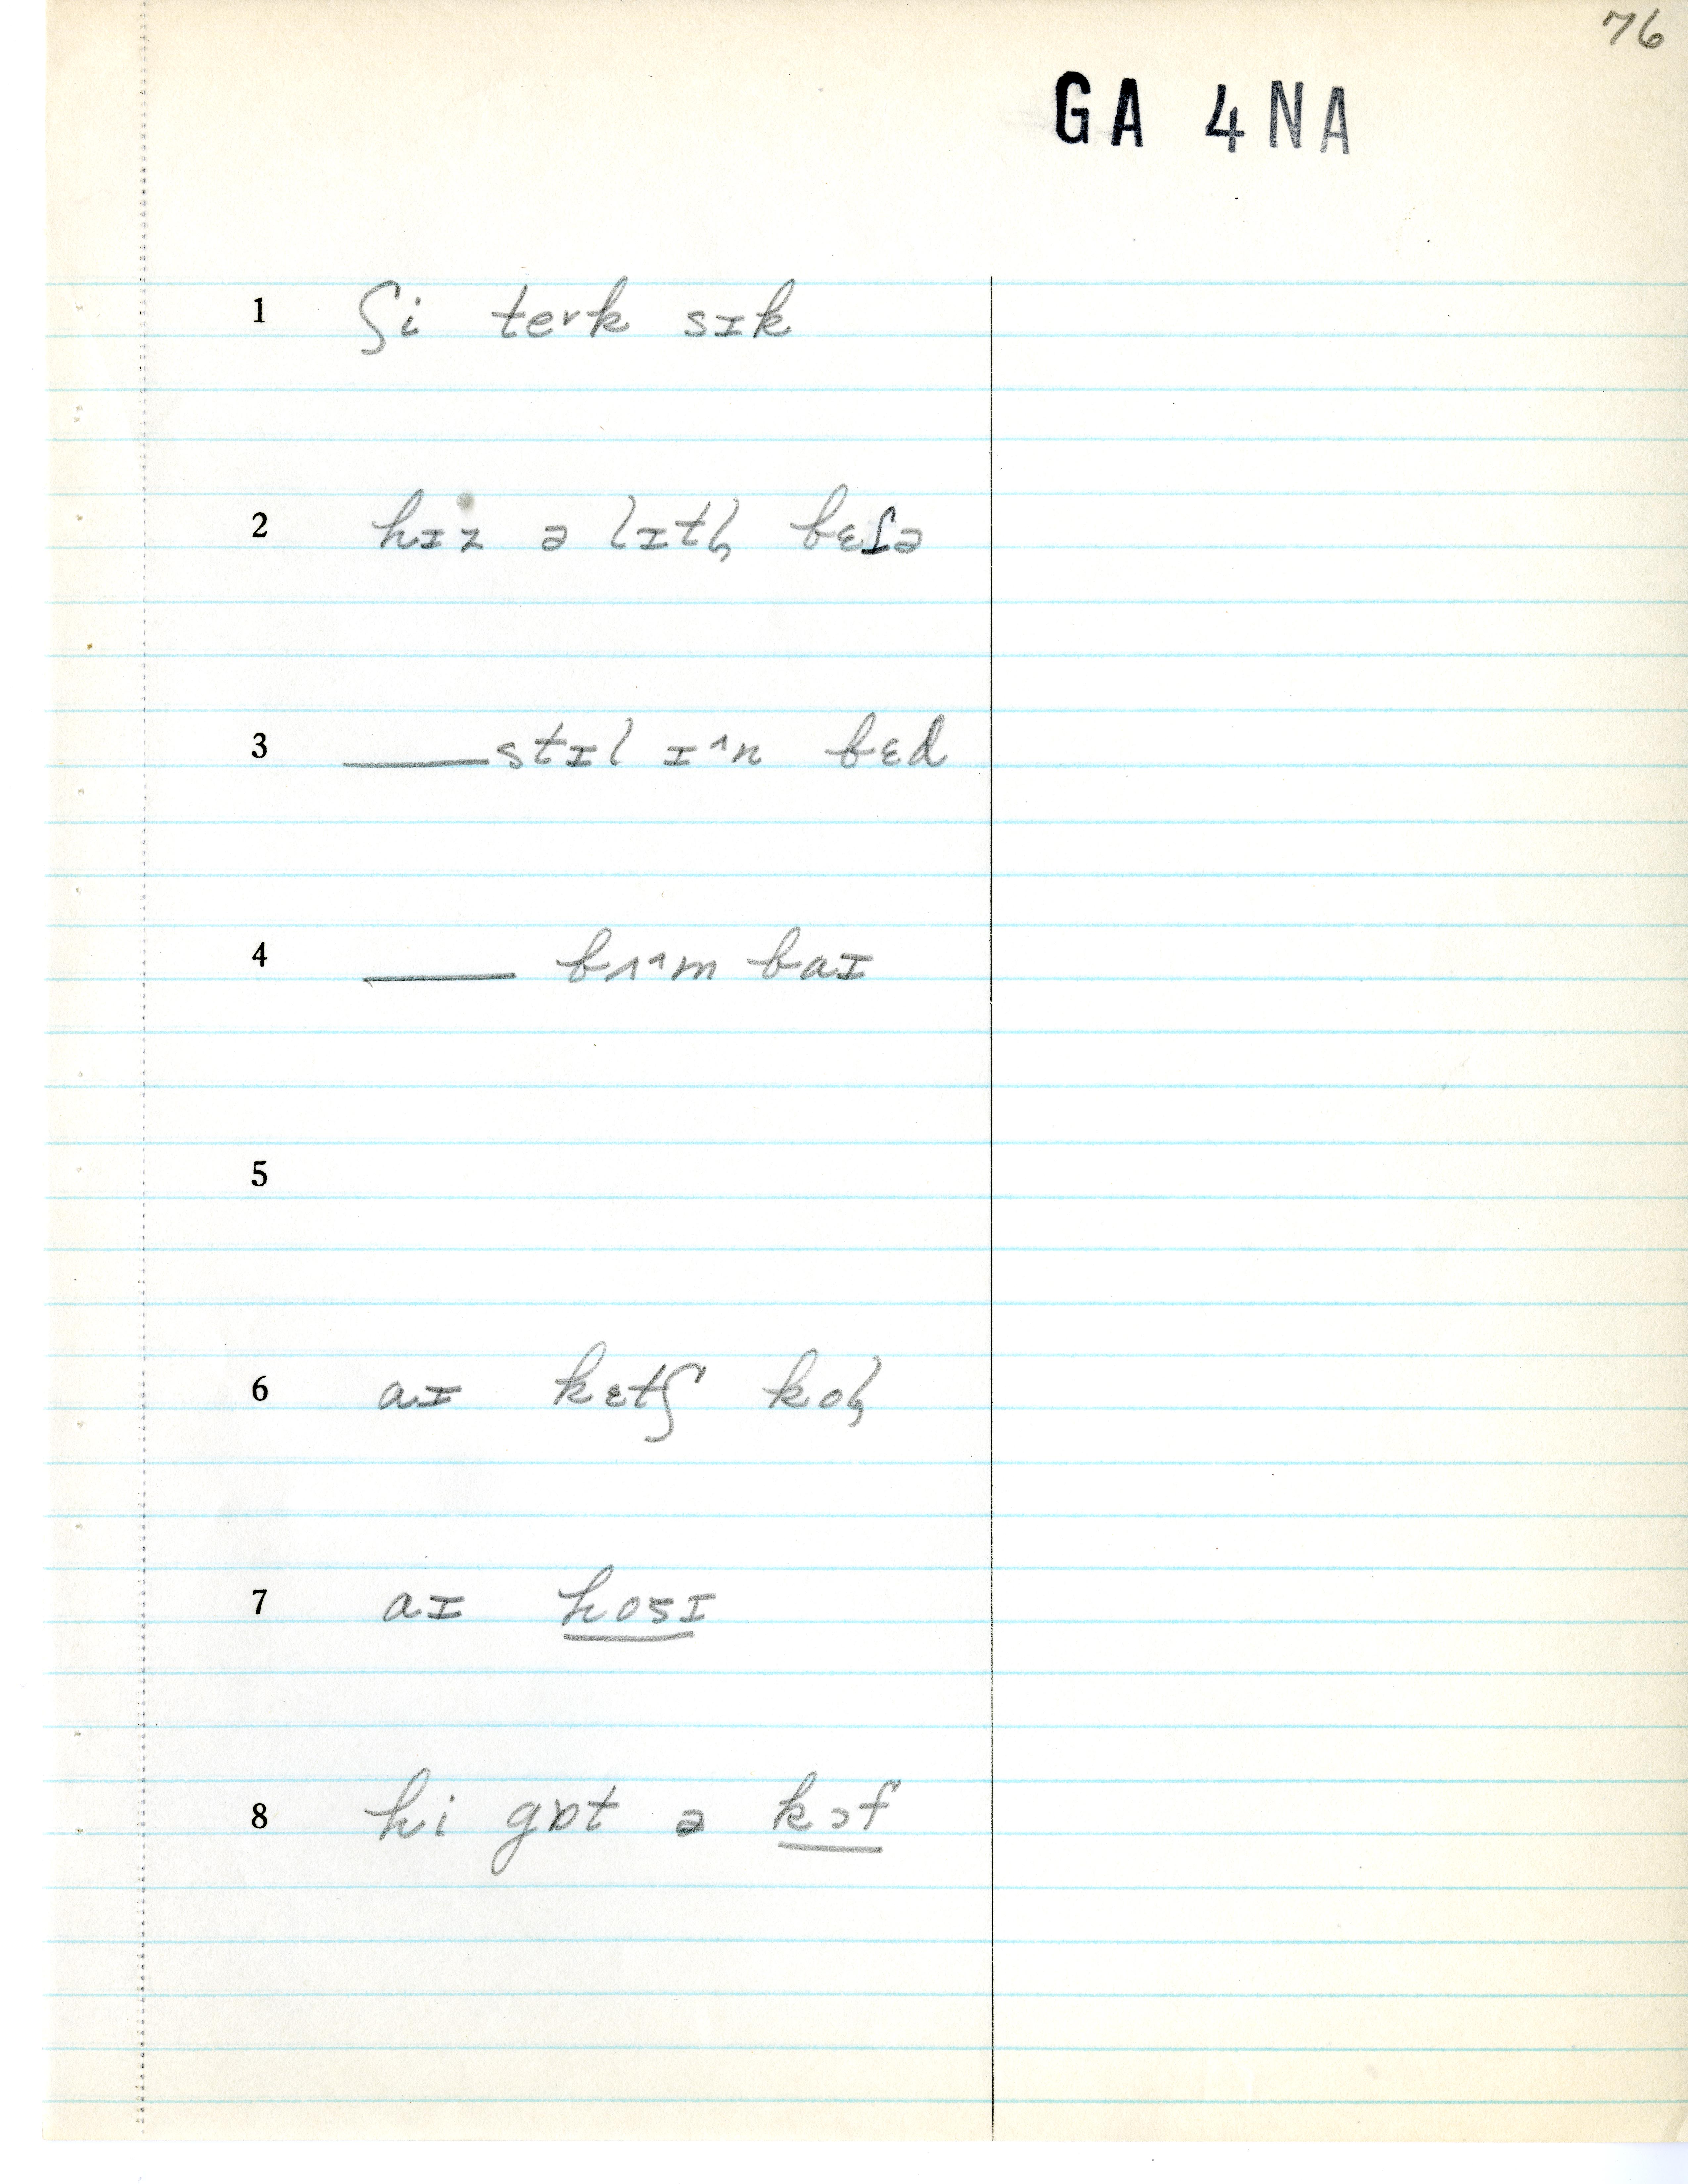 76
GA 4NA
1 ʃi tevk sɪk
2 hɪz ə lɪtl̥ bɛʃə
3 ____stɪl ɪ^n bɛd
4 ____ bʌ^^m baɪ
5
6 aɪ kɛtʃ kol̥
7 aɪ hosɪ
8 hi gɒt ə kɔf